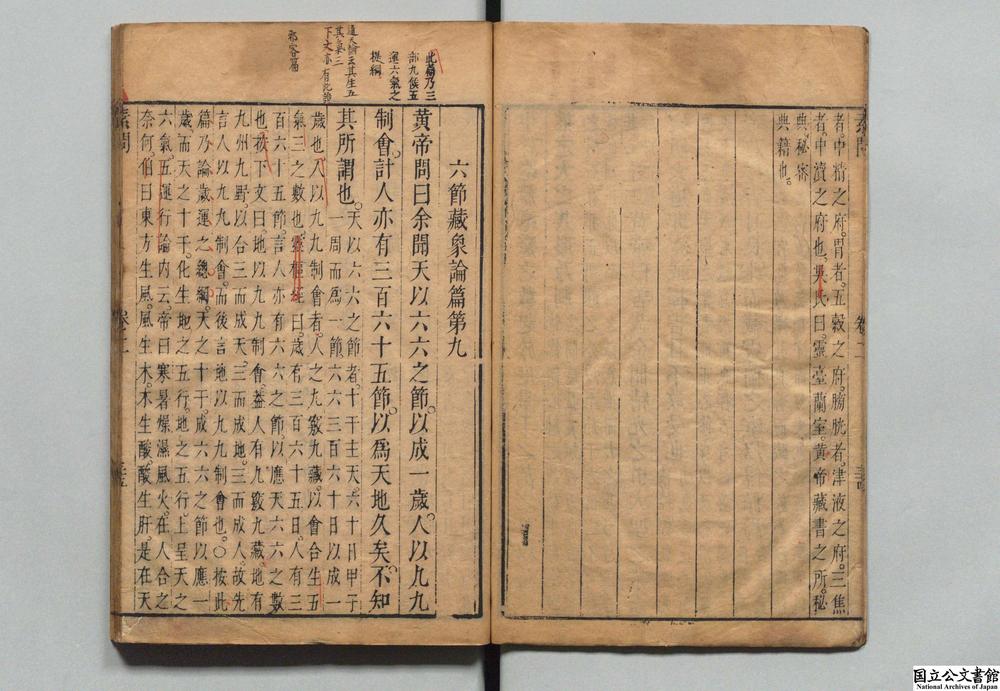 者中精之府胃者五穀之府膀胱者津液之府三焦
者中瀆之府也吳氏曰靈臺蘭室黃帝藏書之所秘
典秘密
典籍也
卷二
素問
此篇乃三
部九候五
運六氣之
提綱
其氣三
六節藏象論篇第九
黃帝問曰余聞天以六六之節以成一歲人以九九
制會計人亦有三百六十五節以爲天地久矣不知
其所謂也天以六六之節者十干主天六十日甲子
一周而爲一節六六三百六十日以成一
歲也人以九九制會者人之九竅九藏以會合生五
氣三之數也靈樞經曰歲有三百六十五日人有三
百六十五節言人亦有六六之節以應天六六之數
也按下文曰地以九九制會蓋人有九竅九藏地有
九州九野以合三而成天三而成地三而成人故先
言人以九九制會而後言地以九九制會也○按此
篇乃論歲運之總綱天之十干成六六之節以應一
歲而天之十干化生地之五行地之五行上呈天之
六氣五運行論內云帝曰寒暑燥濕風火在人合之
奈何伯曰東方生風風生木木生酸酸生肝是在天
素問
卷二
国立公文書館
National Archives of Japan